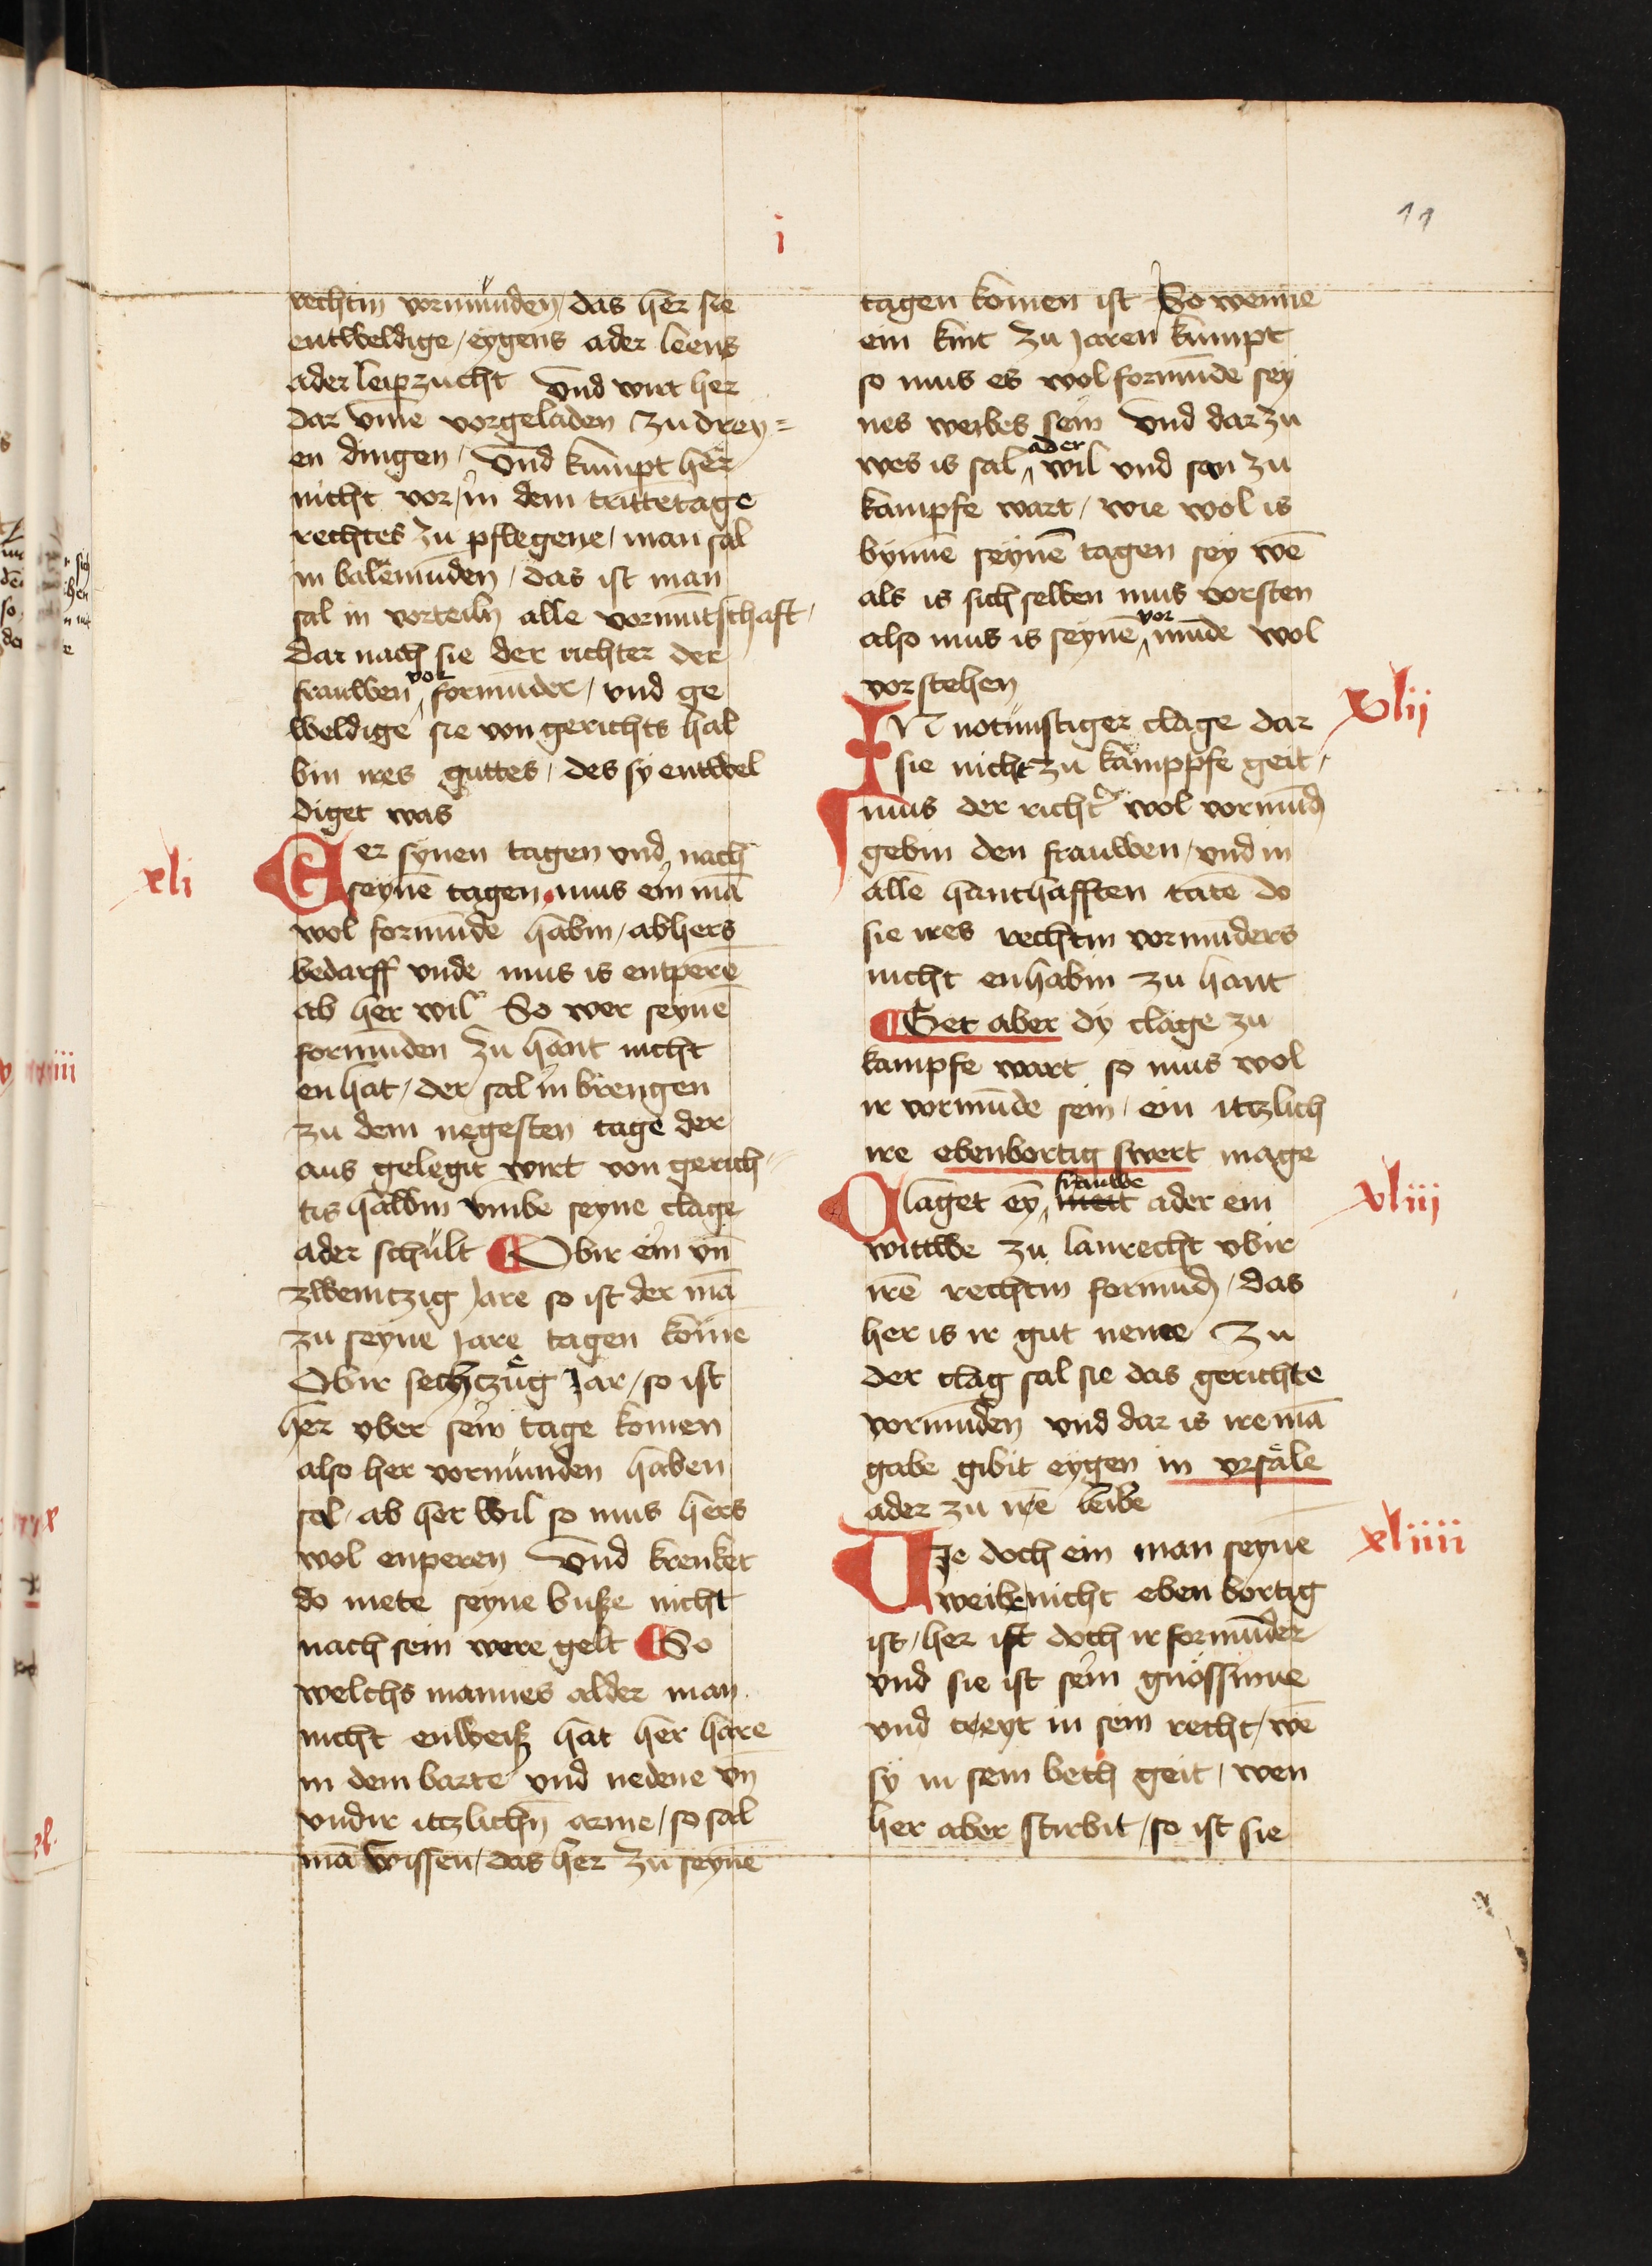 11
i
rechtin vormünden / das her sie
entweldige / eygens ader leens
ader leipzucht Vnd wirt her
dar vm̄e vorgeladen zu drey=
en dingen / Vnd kumpt her
nicht vor / in dem trittetage
rechtes zu pflegene / man sal
in balemunden / das ist man
sal in vorteiln alle vormūtschaft /
Dar nach sie der richter der
frauwen vor formūder / vnd ge
weldige sie von gerichts hal
bin ires guttes / des sy entwel
diget was
xli
Er synen tagen vnd nach
seynē tagen mus ein mā
wol formūde habin / ab hers
bedarff vnde mus is entperē
ab her wil So wer seynē
formūnden zu hant nicht
en hat / der sal in brengen
zu dem negesten tage der
aus gelegit wirt von gerich
tis halbin vmbe seyne clage
ader schült Obir ein vn̄
zwenitzig Jare so ist der mā
zu seyne Jare tagen kom̄e
Obir sechtzüg Jar / so ist
her vber sein tage komen
also her vormünden haben
sal / ab her wil so mus hers
wol enperen Vnd krenket
do mete seyne buße nicht
nach sein were gelt So
welchs mannes alder man
nicht enweiß hat her hare
in dem barte vnd nedene vn̄
vndir itzlichn̄ arme / so sal
mā wissen / das her zu seynē
tagen komen ist So wenne
ein kint zu Jaren kumpt
so mus es wol formūde sey
nes weibes sein Vnd dar zu
wes is sal ader wil vnd san zu
kampfe wart / wie wol is
bynnē seynē tagen sey wē
als is sich selben mus vorsten
also mus is seynē vor mūde wol
vorstehen
xlii
IN notünftiger clage dar
sie nicht zu kamppfe geit /
mus der richter wol vormūd
gebin den frauwen / vnd in
allē hanthafften tatē do
sie ires rechtin vormūders
nicht enhabin zu hant
Get aber dy clage zu
kampfe wart so mus wol
ir vormūde sein / ein itzlich
ire ebenbortig swert mage
xliii
Claget ey frauwe meit ader ein
wittwe zu lanrecht vbir
irē rechtin formūd / das
her is ir gut neme Zu
der clag sal sie das gerichte
vormūden vnd dar is ire mā
gabe gibit eygen in vrsale
ader zu irē leibe
xliiii
Ie doch ein man seynē
weibe nicht eben bortig
ist / her ist doch ir formūder
vnd sie ist sein gnössinne
vnd treyt in sein recht / wē
sy in sein beth geit / wen
her aber stirbit / so ist sie